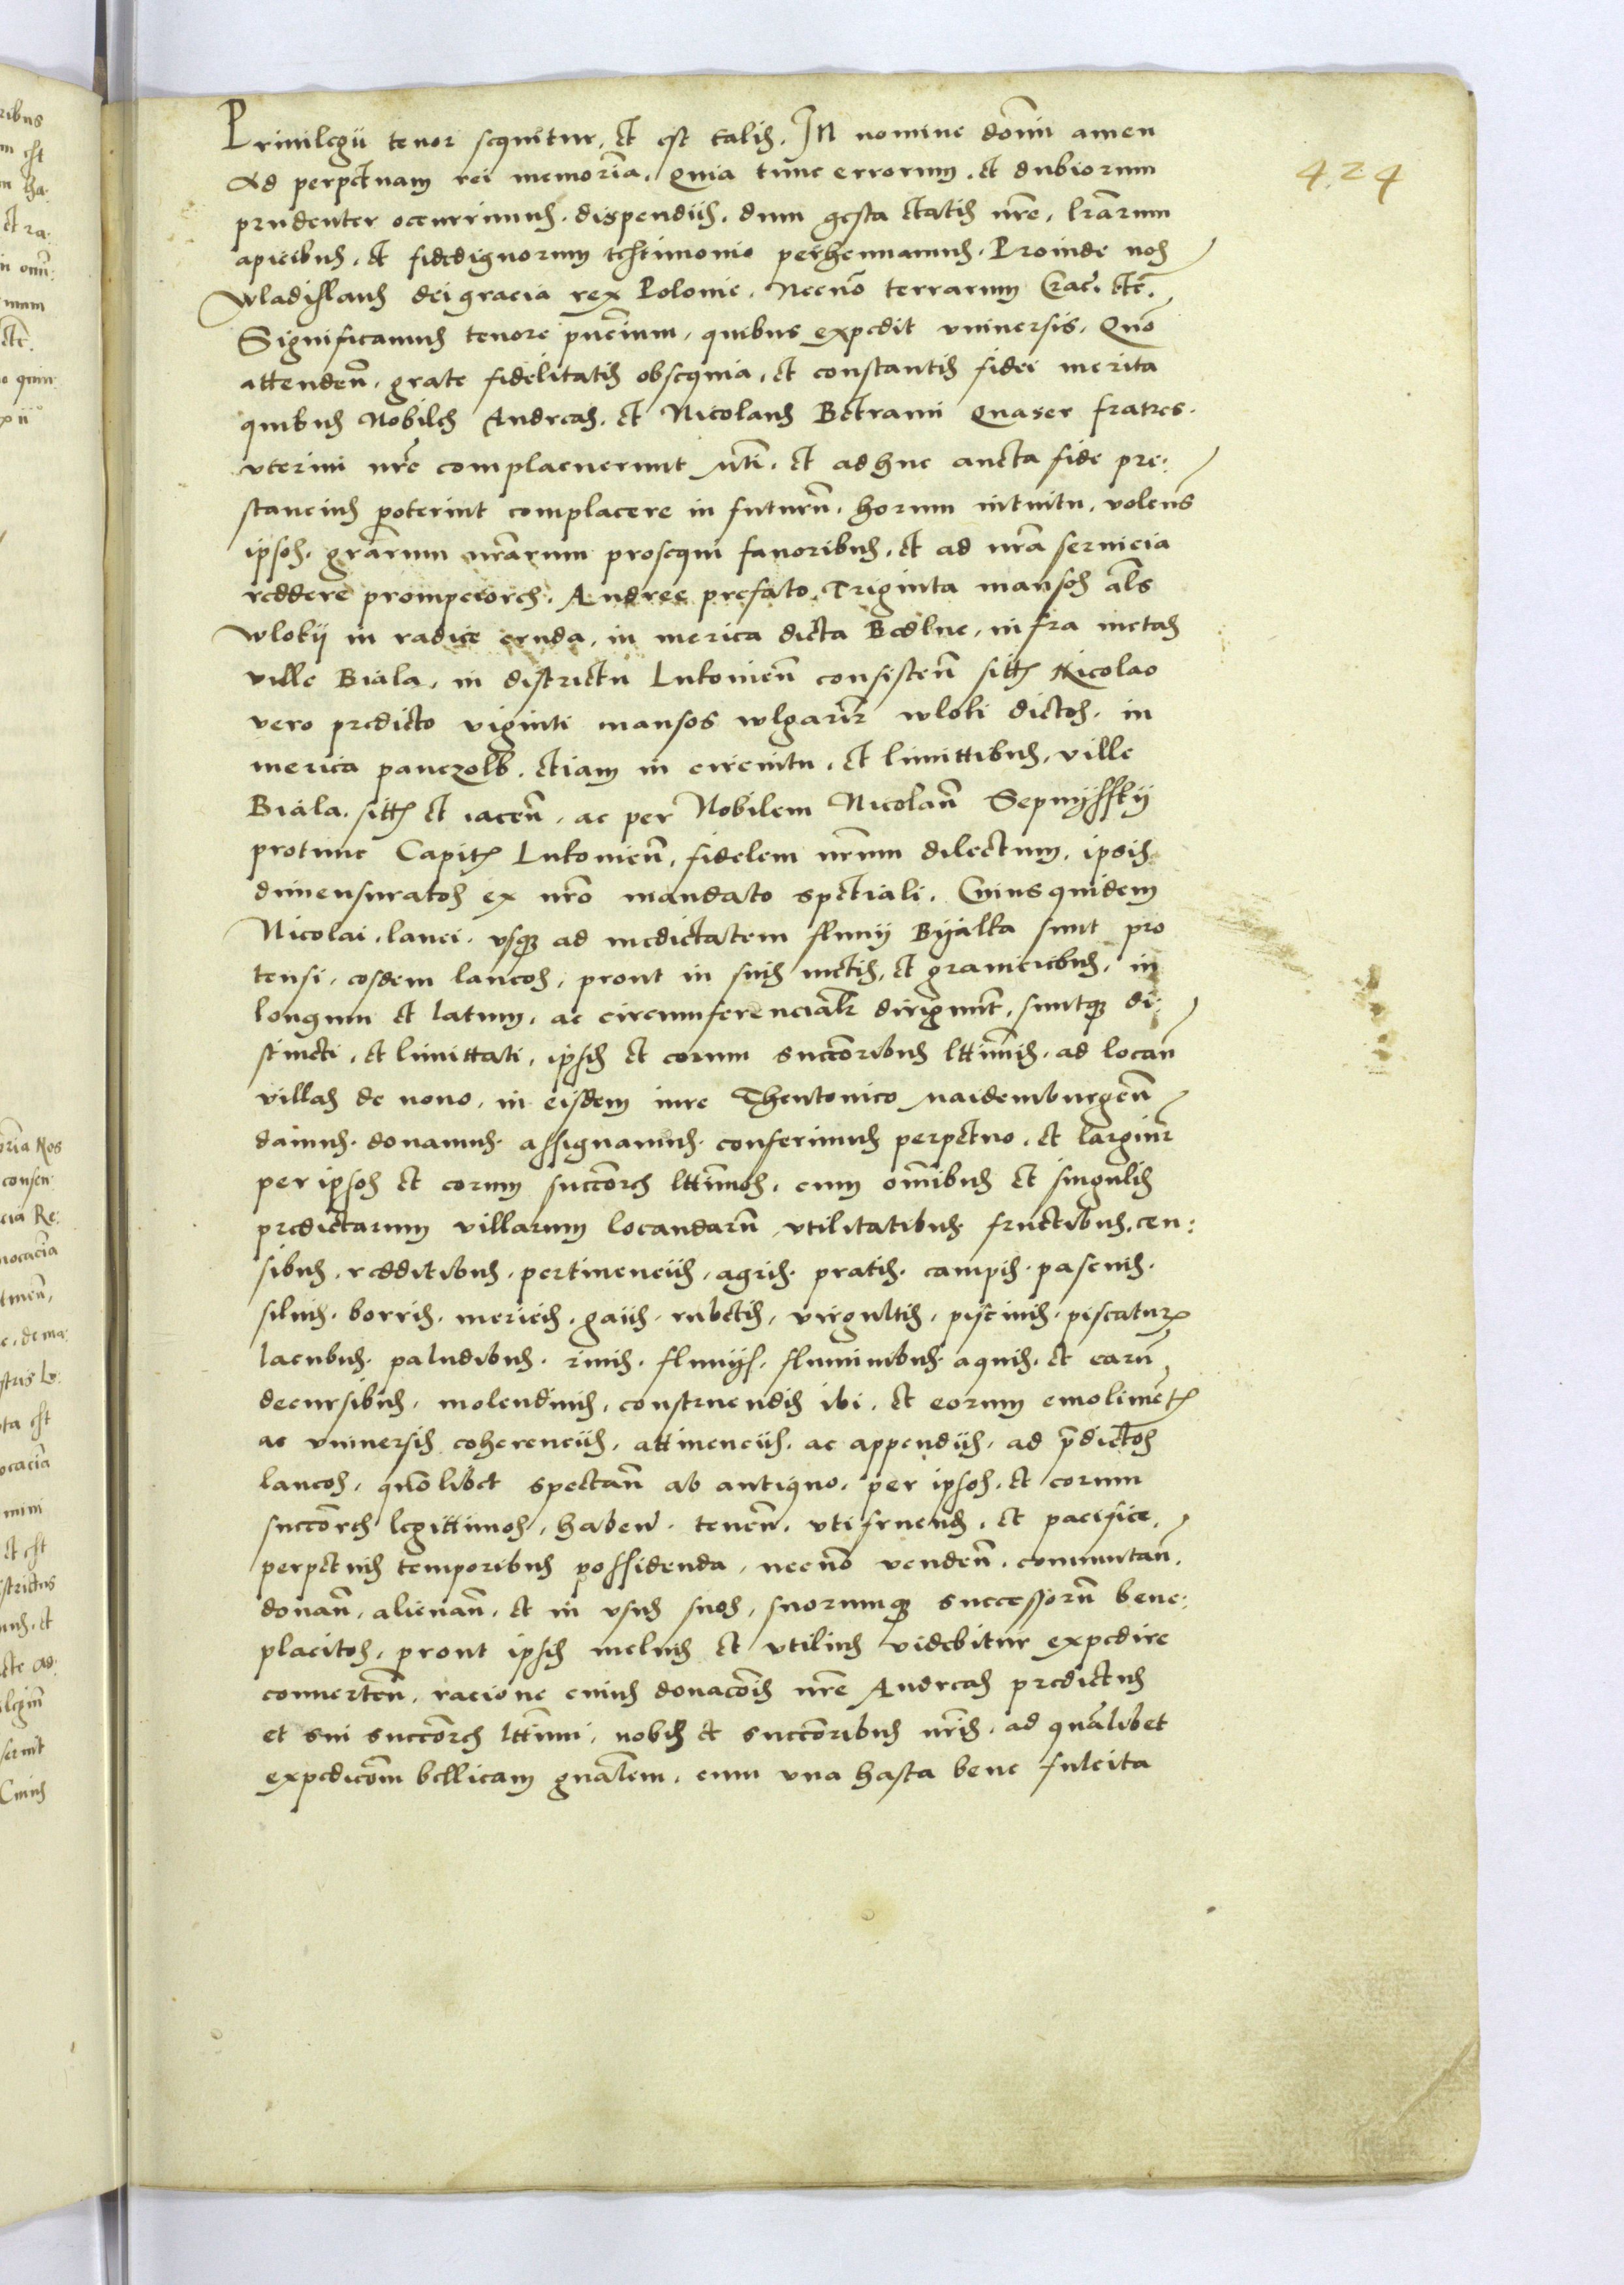 424
Priuilegii tenor sequitur, et est talis. In nomine domi͂ni amen
Ad perpetuam rei memoria͂. Quia tunc errorum, et dubiorum
prudenter occurrimus dispendiis, dum gesta etatis nr͂e, lr͂arum
apicibus, et fidedignorum testimonio perhennamus. Proinde nos
Wladislaus dei gracia rex Polonie, Necno͂ terrarum Crac͂. etc͂.
Significamus tenore pn͂cium, quibus expedit vniuersis. Quo͂
attenden͂, grate fidelitatis obsequia, et constantis fidei merita
quibus Nobiles Andreas, et Nicolaus Betrami Quaser fratres
vterini nr͂e complacuerunt mt͂i, et adhuc aucta fide pre:
stancius poterint complacere in futuru͂, horum intuitu, volens
ipsos, gr͂arum nr͂arum prosequi fauoribus, et ad nr͂a seruicia
reddere prompciores, Andree prefato, Triginta mansos al͂s
wlokij in radice cruda, in merica dicta Bedlne, infra metas
ville Biala, in districtu Lukouien͂ consisten͂ sitos Nicolao
vero predicto viginti mansos wlgarit͂r wloki dictos, in
merica panczolb, etiam in circuitu, et limittibus, ville
Biala, sitos et iacen͂, ac per Nobilem Nicolau͂ Sepnijsskij
protunc Capit. Lukouien͂, fidelem nr͂um dilectum, ipsis
dimensuratos ex nr͂o mandato spetiali. Cuiusquidem
Nicolai, lanei, vsq ad medietatem fluuij Bijalka sunt pro
tensi, eosdem laneos, prout in suis metis, et graniciebus, in
longum et latum, ac circumferencialr͂ dirigunt͂, suntq di:
stincti, et limittati, ipsis et eorum succo͂ribus ltt͂imis, ad locan͂
villas de nouo, in eisdem iure Theutonico maidemburgen͂
damus, donamus, assignamus, conferimus perpetuo, et largimr͂
per ipsos et eorum succo͂res ltt͂imos, cum om͂ibus et singulis
predictarum villarum locandaru͂ vtilitatibus, fructibus, cen:
sibus, redditibus, pertinenciis, agris, pratis, campis, pascuis,
siluis, borris, mericis, gaiis, rubetis, virgultis, piscinis, piscatur.
lacubus, paludibus, riuis, fluuijs, fluminibus, aquis, et earu͂
decursibus, molendinis, construendis ibi, et eorum emolime͂t.
ac vniuersis coherenciis, attinenciis, ac appendiis, ad p͂dictos
laneos, quo͂libet spectan͂ ab antiquo, per ipsos, et eorum
succo͂res legittimos, haben͂, tenen͂, vtifruend, et pacifice,
perpetuis temporibus possidenda, necno͂ venden͂, commutan͂,
donan͂, alienan͂, et in vsus suos, suorumq successoru͂ bene:
placitos, prout ipsis melius et vtilius videbitur expedire
conuerten͂, racione cuius donaco͂is nr͂e Andreas predictus
et sui succo͂res ltt͂imi, nobis et succo͂ribus nr͂is, ad qua͂libet
expedico͂m bellicam gn͂alem, cum vna hasta bene fulcita